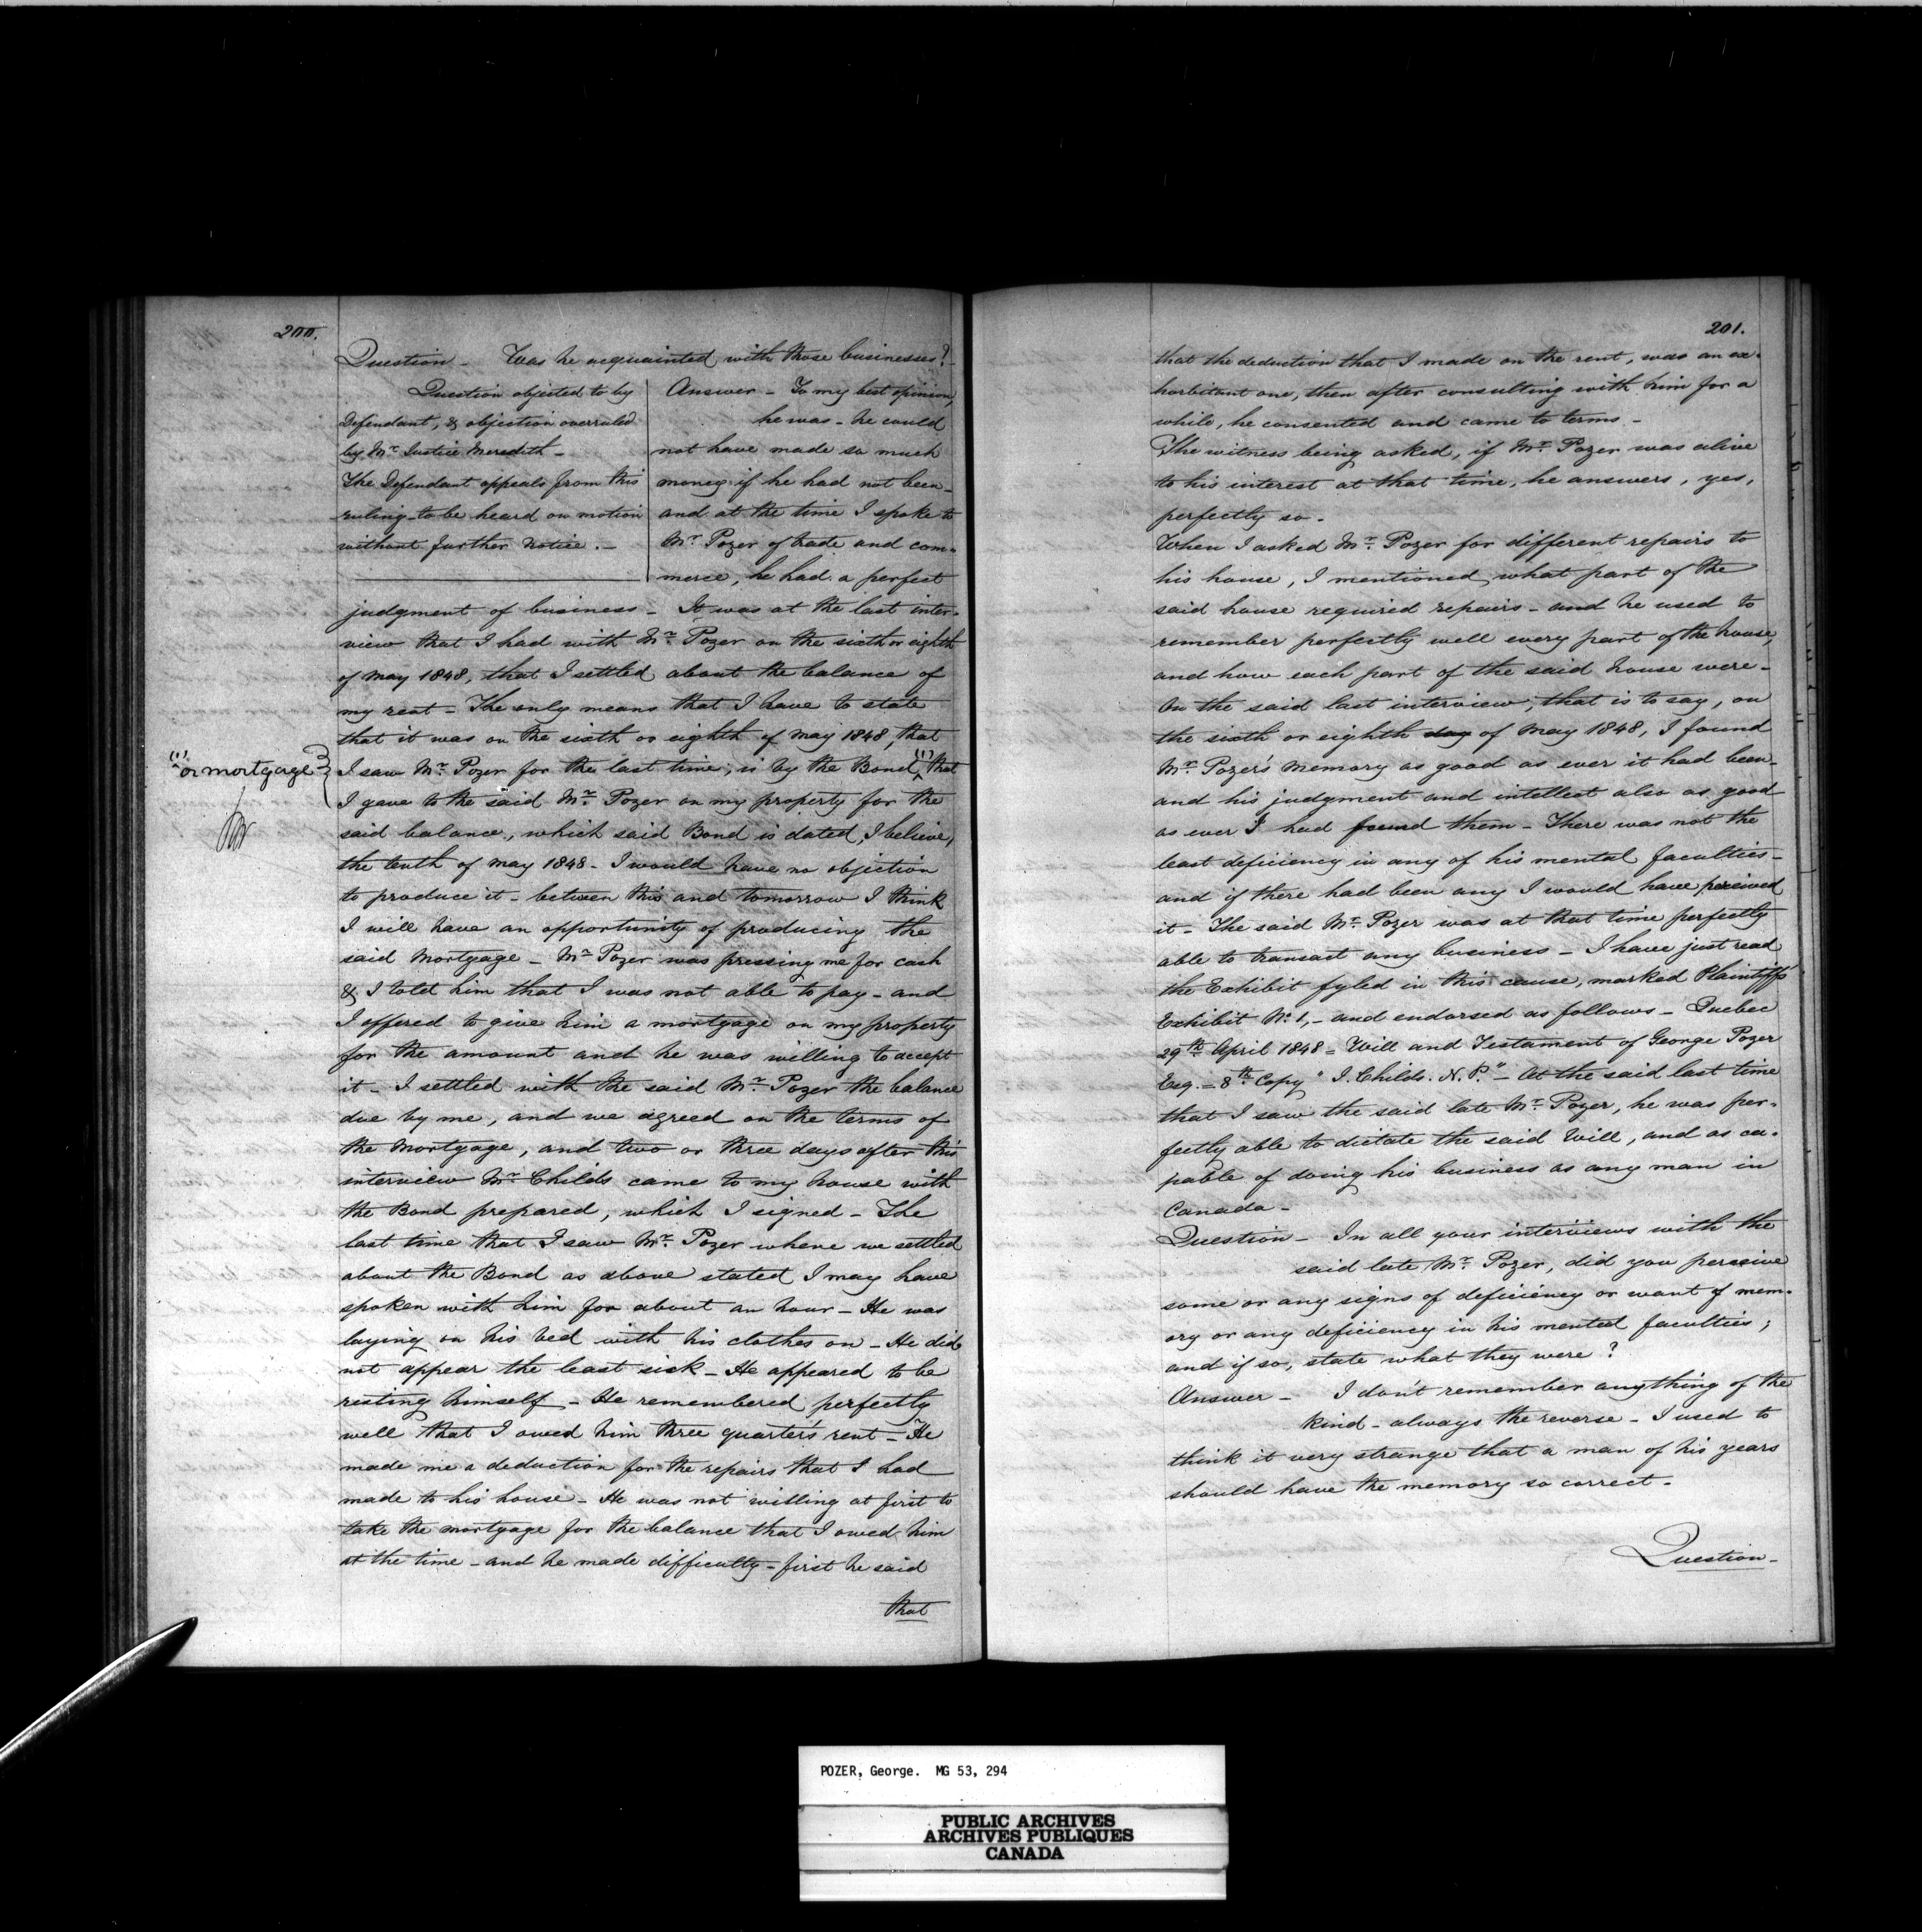 200.
Question - Was he acquainted with those businesses? -
Question objected to by
Defendant, & objection overruled
by Mr. Justice Meredith -
The Defendant appeals from this
ruling to be heard on motion
without further notice. -
Answer - To my best opinion,
he was - he could
not have made so much
money if he had not been -
and at the time I spoke to
Mr. Pozer of trade and com-
merce, he had a perfect
judgment of business - It was at the last inter-
view that I had with Mr. Pozer on the sixth or eighth
of May 1848, that I settled about the balance of
my rent - The only means that I have to state
that it was on the sixth or eighth of May 1848, that
(1) or mortgage
I saw Mr. Pozer for the last time, is by the Bond (1) that
I gave to the said Mr. Pozer on my property for the
said balance, which said Bond is dated, I believe,
the tenth of May 1848 - I would have no objection
to produce it - between this and tomorrow I think
I will have an opportunity of producing the
said Mortgage - Mr. Pozer was pressing me for cash
& I told him that I was not able to pay - and
I offered to give him a mortgage on my property
for the amount and he was willing to accept
it - I settled with the said Mr. Pozer the balance
due by me, and we agreed on the terms of
the Mortgage, and two or three days after this
interview Mr. Childs came to my house with
the Bond prepared, which I signed - The
last time that I saw Mr. Pozer where we settled
about the Bond as above stated I may have
spoken with him for about an hour - He was
laying on his bed with his clothes on - He did
not appear the least sick - He appeared to be
resting himself - He remembered perfectly
well that I owed him three quarter's rent - He
made me a deduction for the repairs that I had
made to his house - He was not willing at first to
take the mortgage for the balance that I owed him
at the time - and he made difficulty - first he said
that
201.
that the deduction that I made on the rent, was an ex-
horbitant one, then after consulting with him for a
while, he consented and came to terms -
The witness being asked, if Mr. Pozer was alive
to his interest at that time, he answers, yes,
perfectly so -
When I asked Mr. Pozer for different repairs to
his house, I mentioned what part of the
said house required repairs - and he used to
remember perfectly well every part of the house,
and how each part of the said house were -
On the said last interview, that is to say, on
the sixth or eighth day of May 1848, I found
Mr. Pozer's memory as good as ever it had been -
and his judgment and intellect also as good
as ever I had found them - There was not the
least deficiency in any of his mental faculties -
and if there had been any I would have perceived
it - The said Mr. Pozer was at that time perfectly
able to transact any business - I have just read
the Exhibit fyled in this cause, marked Plaintiffs'
Exhibit No. 1, - and endorsed as follows - Quebec
29th April 1848 = Will and Testament of George Pozer
Esq. - 8th Copy " J. Childs. N. P." - At the said last time
that I saw the said late Mr. Pozer, he was per-
fectly able to dictate the said Will, and as ca-
pable of doing his business as any man in
Canada -
Question - In all your interviews with the
said late Mr. Pozer, did you perceive
some or any signs of deficiency or want of mem-
ory or any deficiency in his mental faculties;
and if so, state what they were?
Answer - I don't remember anything of the
kind - always the reverse - I used to
think it very strange that a man of his years
should have the memory so correct -
Question -
POZER, George. MG 53, 294
PUBLIC ARCHIVES
ARCHIVES PUBLIQUES
CANADA